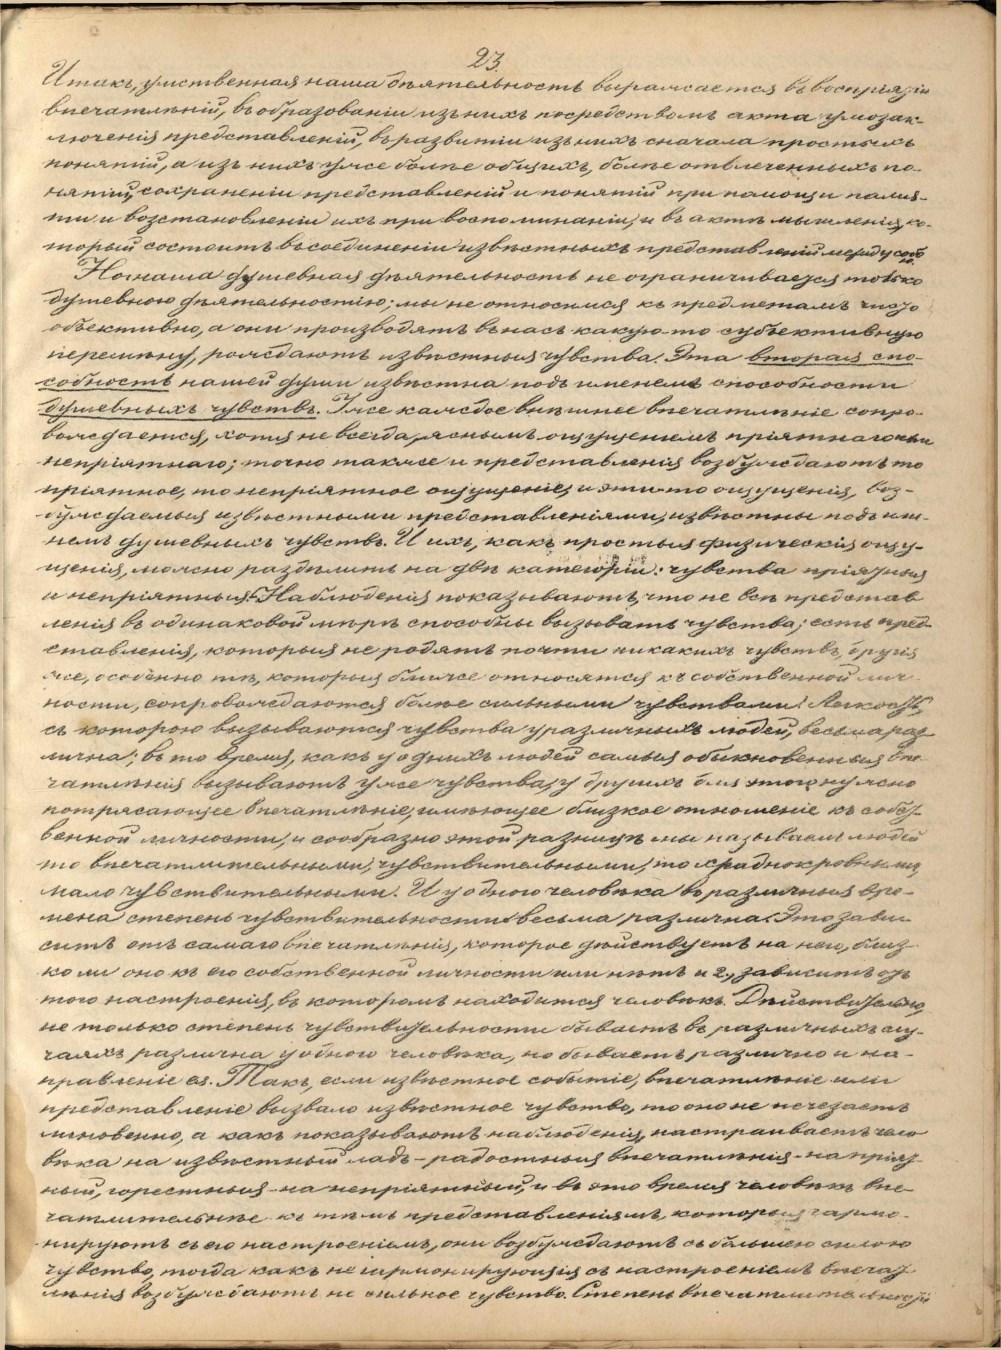 23.
Итакъ, умственная наша дѣятельность выражается въ воспріятіи
впечатлѣній, въ образованіи изъ нихъ посредствомъ акта умозак-
люченія представленій, въ развитіи изъ нихъ сначала простыхъ
понятій, а изъ нихъ уже болѣе общихъ, болѣе отвлеченныхъ по-
нятій, сохраненіи представленій и понятій при помощи памя-
ти и возстановленіи ихъ при воспоминаніи, и въ актѣ мышленія, ко-
торый состоитъ въ соединеніи извѣстныхъ представленій между собой.
Но наша душевная дѣятельность не ограничивается только
душевною дѣятельностію; мы не относимся къ предметамъ чисто
объективно, а они производятъ въ насъ какую-то субъективную
перемѣну, рождаютъ извѣстныя чувства. Эта вторая спо-
собность нашей души извѣстна подъ именемъ способности
душевныхъ чувствъ. Уже каждое внѣшнее впечатлѣніе сопро-
вождается, хотя не всегда, яснымъ ощущеніемъ пріятнаго или
непріятнаго; точно также и представленія возбуждаютъ то
пріятное, то непріятное ощущеніе, и эти-то ощущенія, воз-
буждаемыя извѣстными представленіями, извѣстны подъ име-
немъ душевныхъ чувствъ. И ихъ, какъ простыя физическія ощу-
щенія, можно раздѣлить на двѣ категоріи: чувства пріятныя
и непріятныя. Наблюденія показываютъ, что не всѣ представ
ленія въ одинаковой мѣрѣ способны вызывать чувства; есть пред-
ставленія, которыя не родятъ почти никакихъ чувствъ, другія
же, особенно тѣ, которыя ближе относятся къ собственной лич-
ности, сопровождаются болѣе сильными чувствами. Легкость,
съ которою вызываются чувства у различныхъ людей, весьма раз
лична; въ то время, какъ у однихъ людей самыя обыкновенныя впе-
чатлѣнія вызываютъ уже чувства, у другихъ для этого нужно
потрясающее впечатлѣніе, имѣющее близкое отношеніе къ собст-
венной личности, и сообразно этой разницѣ мы называемъ людей
то впечатлительными, чувствительными, то хладнокровными,
мало чувствительными. И у одного человѣка въ различныя вре-
мена степень чувствительности весьма различна. Это зави-
ситъ отъ самаго впечатлѣнія, которое дѣйствуетъ на него, близ-
ко ли оно къ его собственной личности или нѣтъ и 2., зависитъ отъ
того настроенія, въ которомъ находится человѣкъ. Дѣйствительно,
не только степень чувствительности бываетъ въ различныхъ слу-
чаяхъ различна у одного человѣка, но бываетъ различно и на-
правленіе ея. Такъ, если извѣстное событіе, впечатлѣніе или
представленіе вызвало извѣстное чувство, то оно не исчезаетъ
мгновенно, а какъ показываютъ наблюденія, настраиваетъ чело
вѣка на извѣстный ладъ – радостныя впечатлѣнія – на пріят-
ный, горестныя – на непріятный, и въ это время человѣкъ впе-
чатлительнѣе къ тѣмъ представленіямъ, которыя гармо-
нируютъ съ его настроеніемъ, они возбуждаютъ съ большею силою
чувство, тогда какъ не гармонирующія съ настроеніемъ впечат
лѣнія возбуждаютъ не сильное чувство. Степень впечатлительности